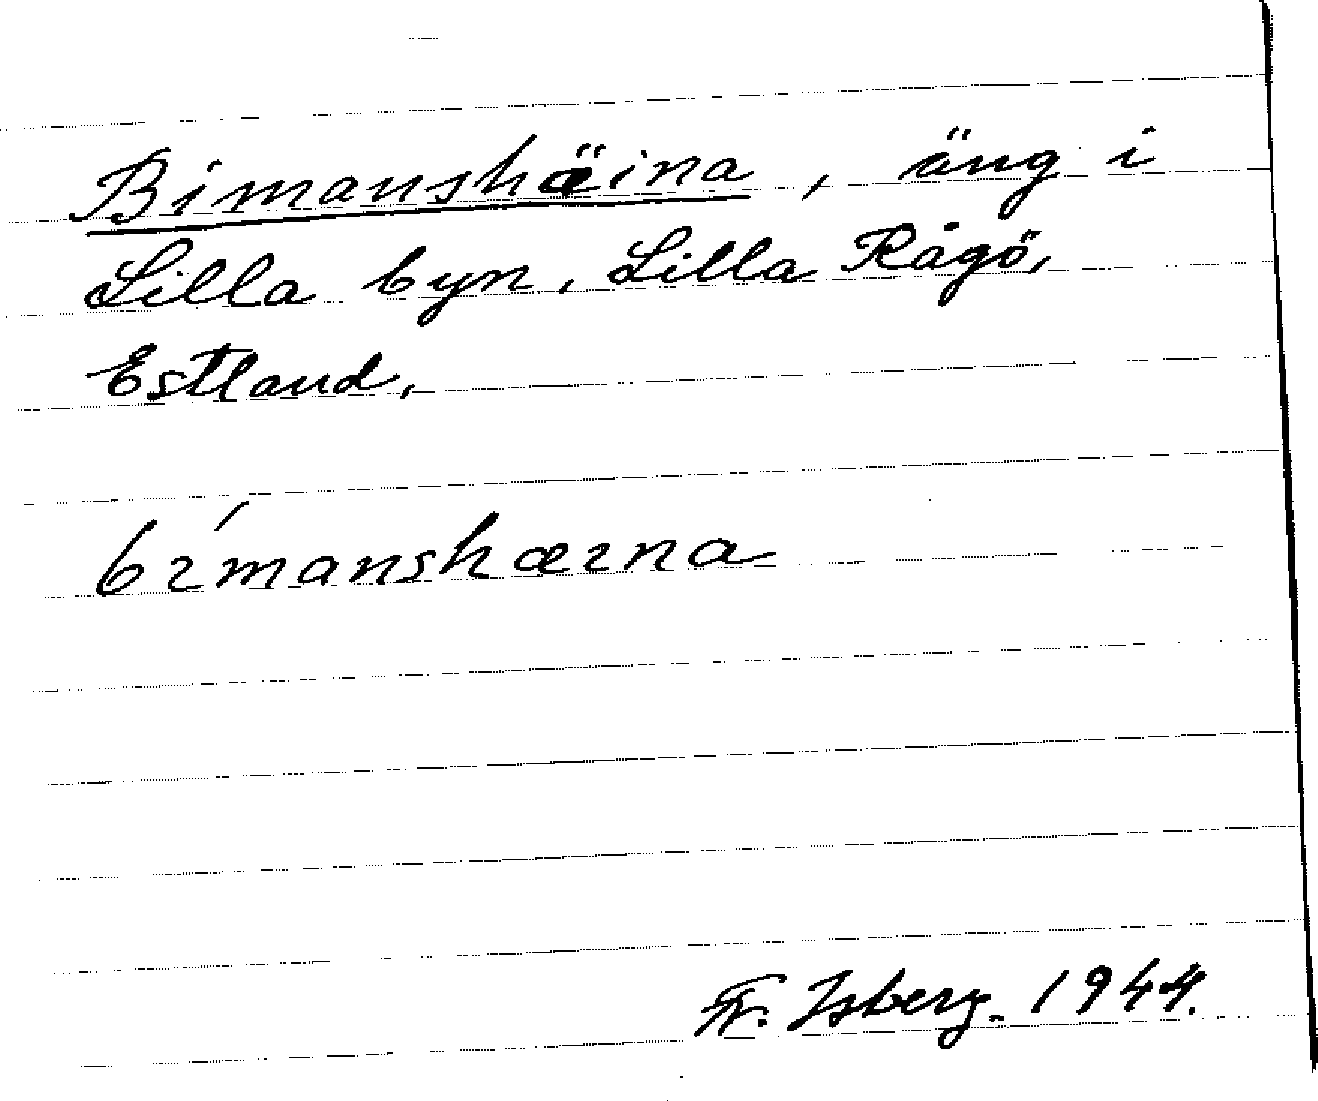 Bimanshäina, äng i
Lilla byn, Lilla Rågö,
Estland,
bɩ́manshæɩna
Fr. Isberg. 1944.